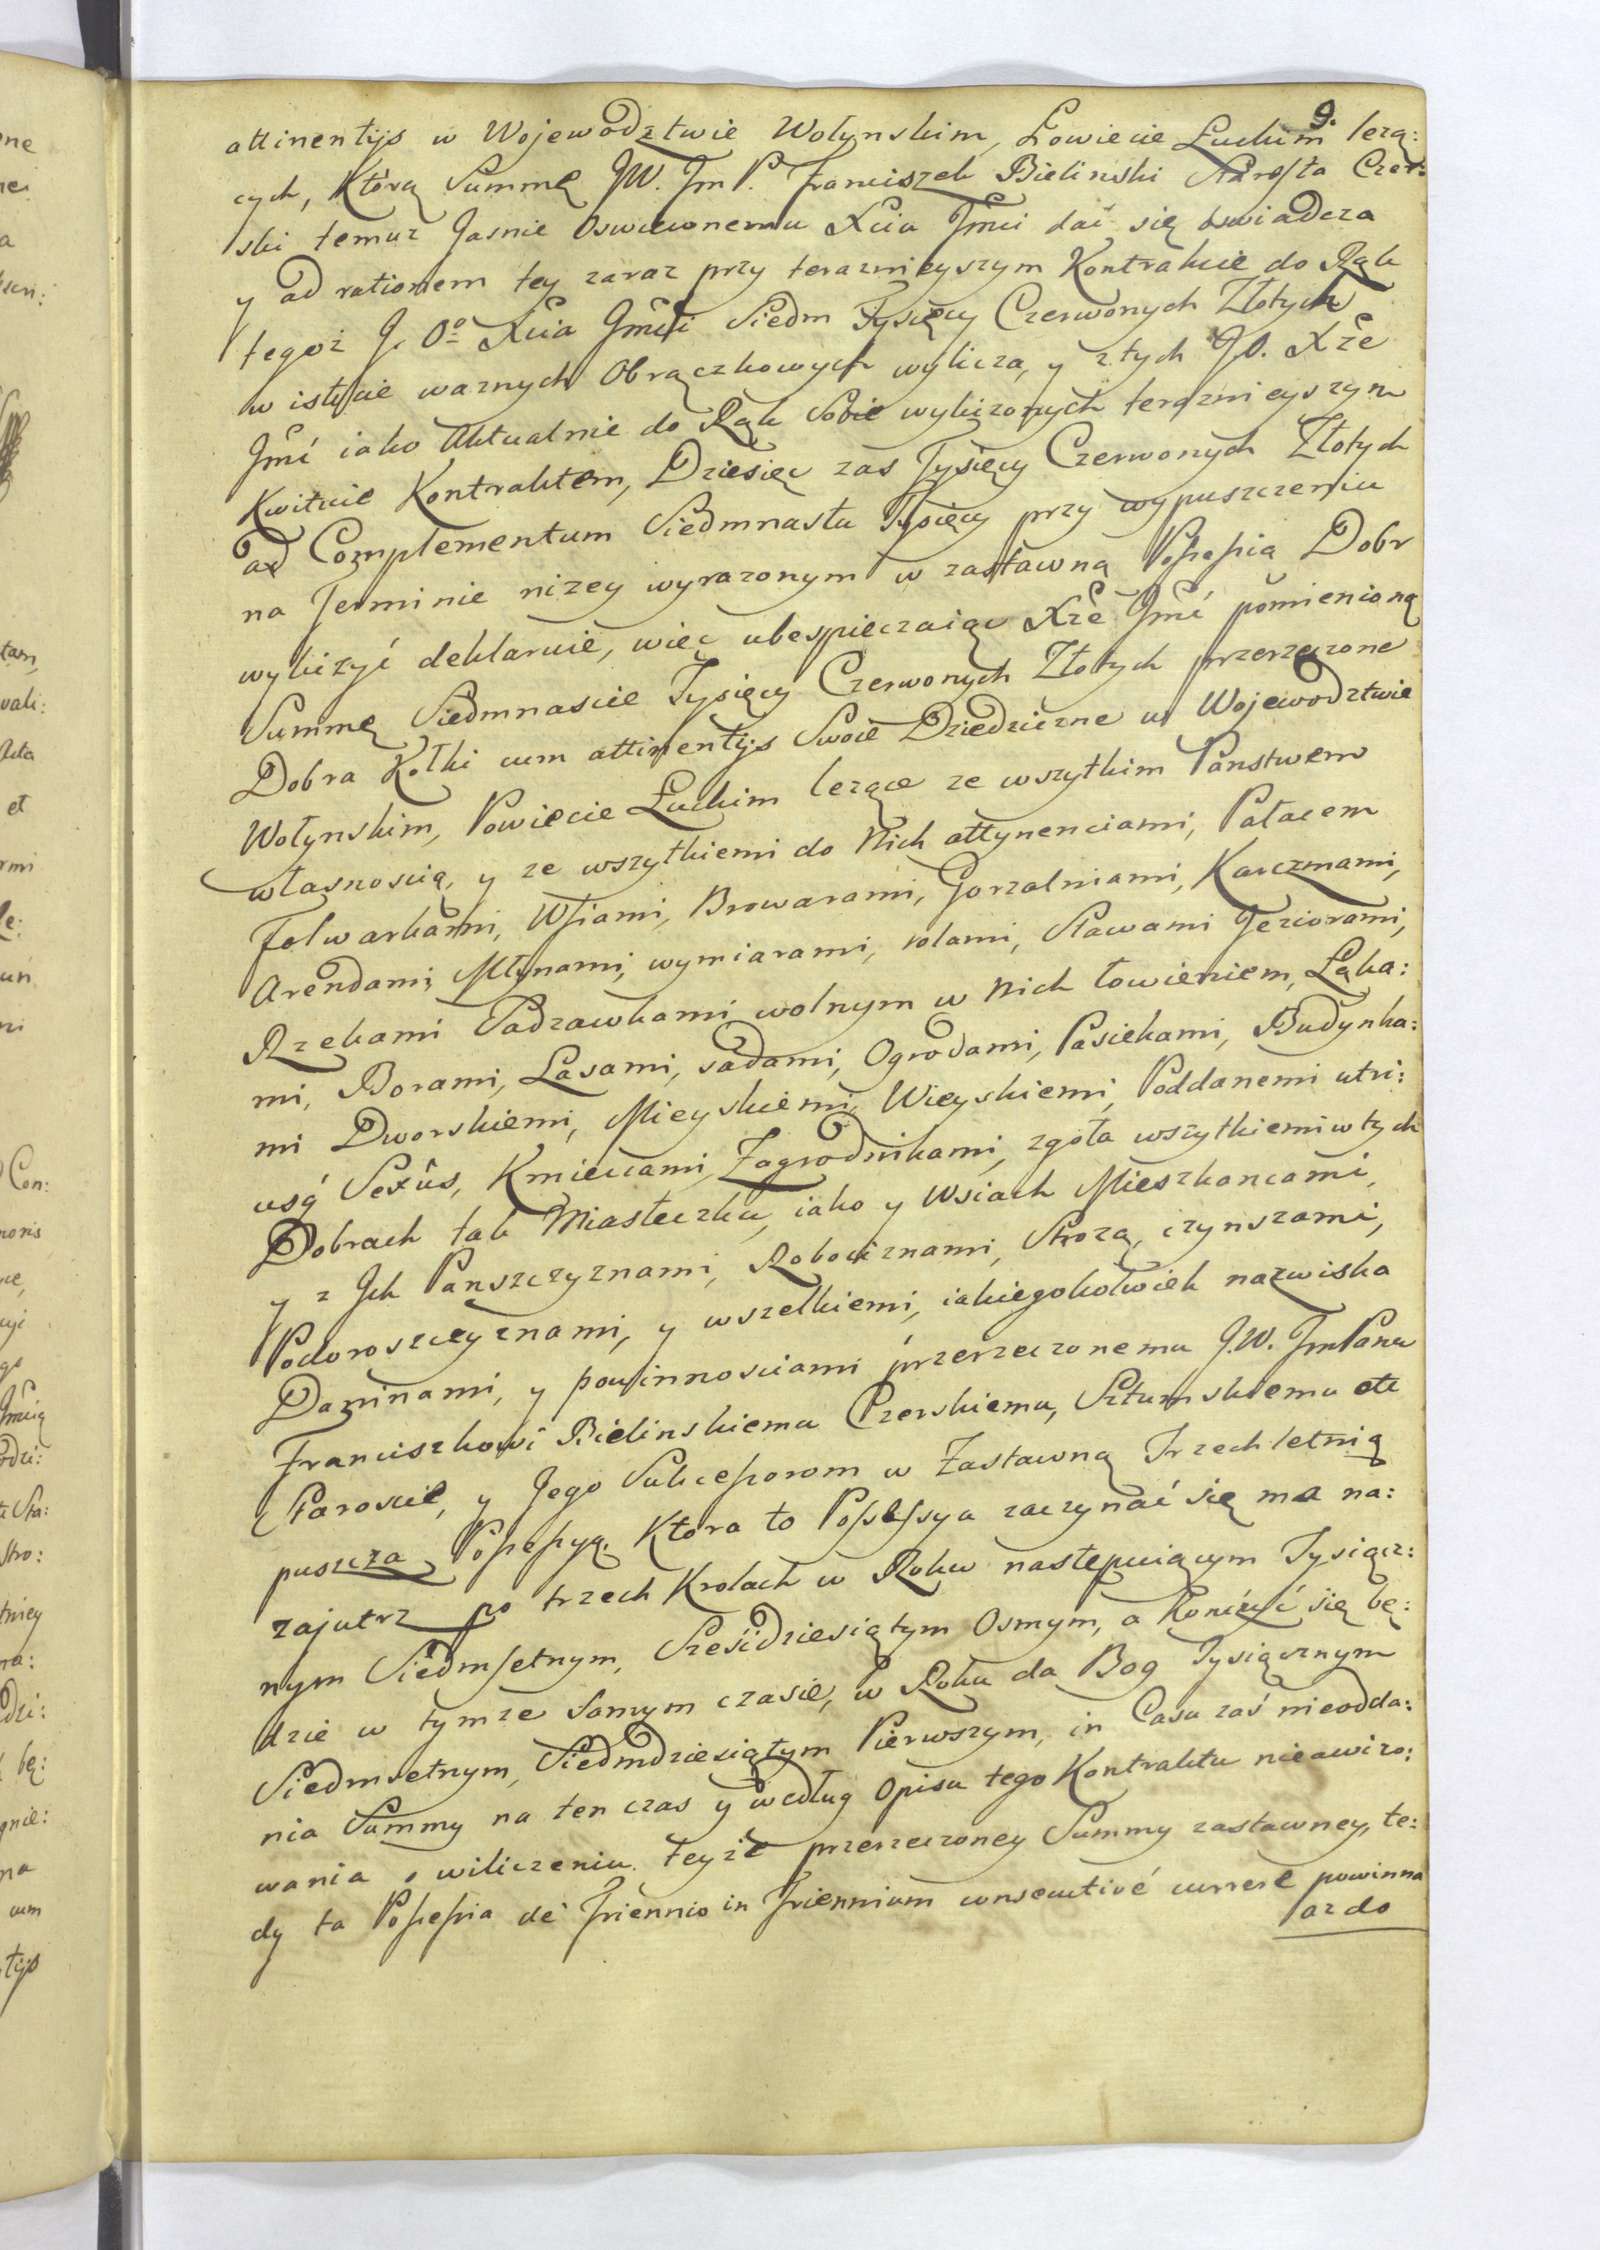 9.
attinentijs w Wojewodztwie Wołynskim, Powiecie Łuckim leżą:
cych, Którą Summę JW. Jm P. Franciszek Bielinski Starosta Czer:
ski temuz Jasnie Oswieconemu Xciu Jmci dać się oswiadcza
y ad rationem tey zaraz przy teraznieyszym Kontrakcie do Rąk
tegoż J. O⁰ Xcia Jmci Siedm Tysięcy Czerwonych Złotych
w istocie waznych Obrączkowych wylicza, y z tych JO. Xże
Jmć iako Aktualnie do Rąk Sobie wyliczonych teraznieyszym
Kwituie Kontraktem, Dziesięc zas Tysięcy Czerwonych Złotych
ad Complementum Siedmnastu Tysięcy przy wypuszczeniu
na Terminie nizey wyrazonym w zastawną Possessią Dobr
wyliczyć deklaruie, więc ubespieczaiąc Xże Jmć pomienioną
Summę Siedmnascie Tysięcy Czerwonych Złotych przerzeczone
Dobra Kołki cum attinentijs Swoie Dziedziczne w Wojewodztwie
Wołynskim, Powiecie Łuckim leżące ze wszytkim Panstwem
własnoscią, y ze wszytkiemi do Nich attynenciami, Pałacem
Folwarkami, Wsiami, Browarami, Gorzalniami, Karczmami,
Arendami, Młynami, wymiarami, rolami, Stawami Jeziorami,
Rzekami Sadzawkami wolnym w Nich łowieniem, Łąka:
mi, Borami, Lasami, sadami, Ogrodami, Pasiekami, Budynka:
mi Dworskiemi, Mieyskiemi, Wieyskiemi, Poddanemi utri:
usq́ Sexûs, Kmieciami, Zagrodnikami, zgoła wszytkiemi w tych
Dobrach tak Miasteczku, iako y Wsiach Mieszkancami,
y z Jch Panszczyznami, Robociznami, Strożą, czynszami,
Podoroszczyznami, y wszelkiemi, iakiegokolwiek nazwiska
Daninami, y powinnosciami przerzeczonemu J.W. Jm Panu
Franciszkowi Bielinskiemu Czerskiemu, Sztumskiemu etc
Staroscie, y Jego Sukcessorom w Zastawną Trzechletnią
puszcza Possessyą. Ktora to Possessya zaczynać się ma na:
zajutrz po trzech Krolach w Roku następuiącym Tysiącz:
nym Siedmsetnym, Sześćdziesiątym Osmym, a Konczyć się bę:
dzie w tymze Samym czasie, w Roku da Bog Tysiącznym
Siedmsetnym, Siedmdziesiątym Pierwszym, in Casu zaś nieodda:
nia Summy na ten czas y według Opisu tego Kontraktu nieawizo:
wania o wiliczeniu teyże przerzeczoney Summy zastawney, te:
dy ta Possessia de Triennio in Triennium consecutivé currere powinna
az do